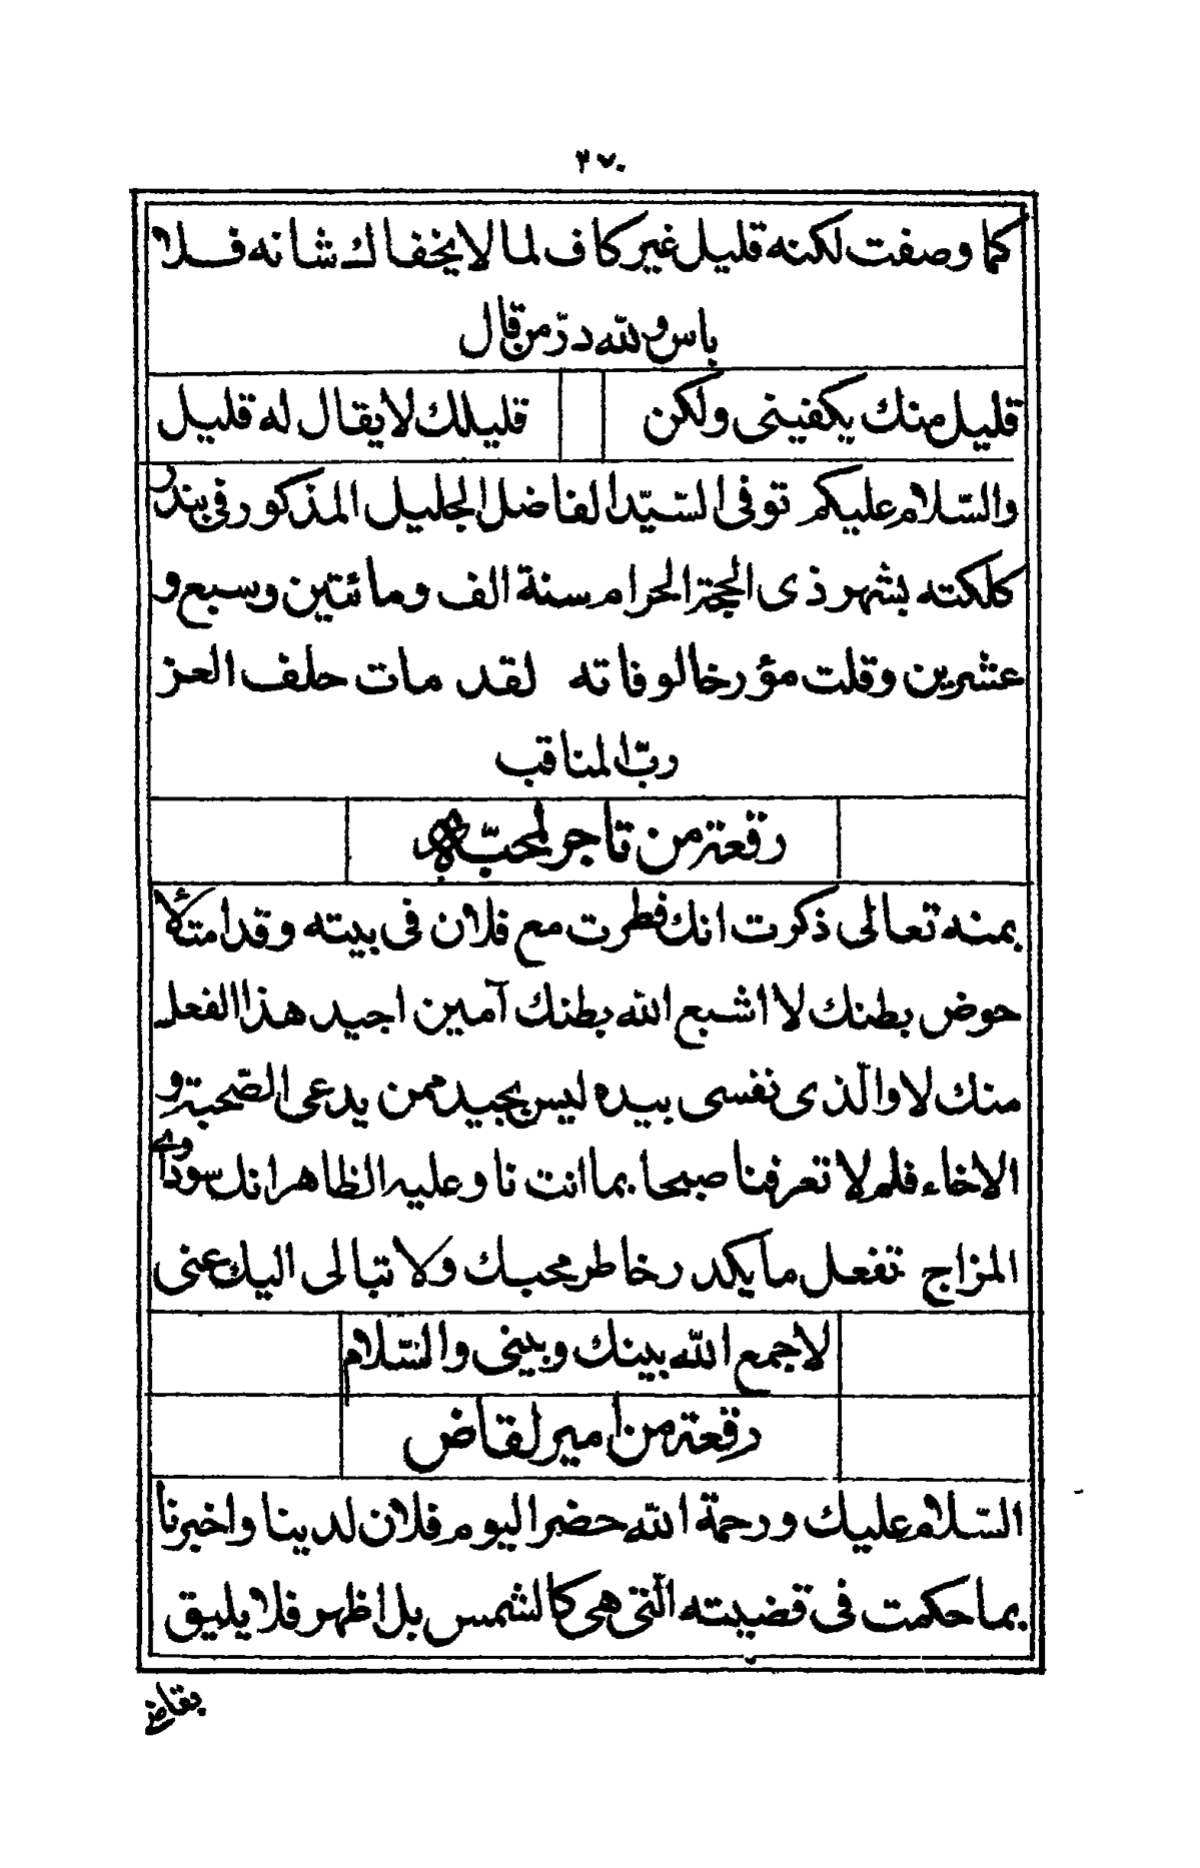 ٢٧٠
كما وصفت لكنه قليل غير كاف لما لا يخفاك شانه فلا
باس ولله درّ من قال
قليل منك يكفيني ولكن قليلك لا يقال له قليل
والسّلام عليكم توفى السّيّد الفاضل الجليل المذكور في بندر
كلكته بشهر ذى الحجة الحرام سنة الف ومائتين وسبع و
عشرين وقلت مؤرخا لوفاته لقد مات حلف العز
ربّ المناقب
رقعة من تاجر لمحبّ له
بمنه تعالى ذكرت انك فطرت مع فلان فى بيته وقد امتلأ
حوض بطنك لا اشبع الله بطنك آمين اجيد هذا الفعل
منك لا والّذى نفسى بيده ليس بجيد ممن يدعى الصّحبة و
الاخاء فلم لا تعرفنا صبحا بما انت ناو عليه الظاهر انك سوداوي
المزاج تفعل ما يكدر خاطر محبك ولا تبالى اليك عنى
لا جمع الله بينك وبينى والسّلام
رقعة من امير لقاض
السّلام عليك ورحمة الله حضر اليوم فلان لدينا واخبرنا
بما حكمت فى قضيته الّتى هى كالشمس بل اظهر فلا يليق
بقاض